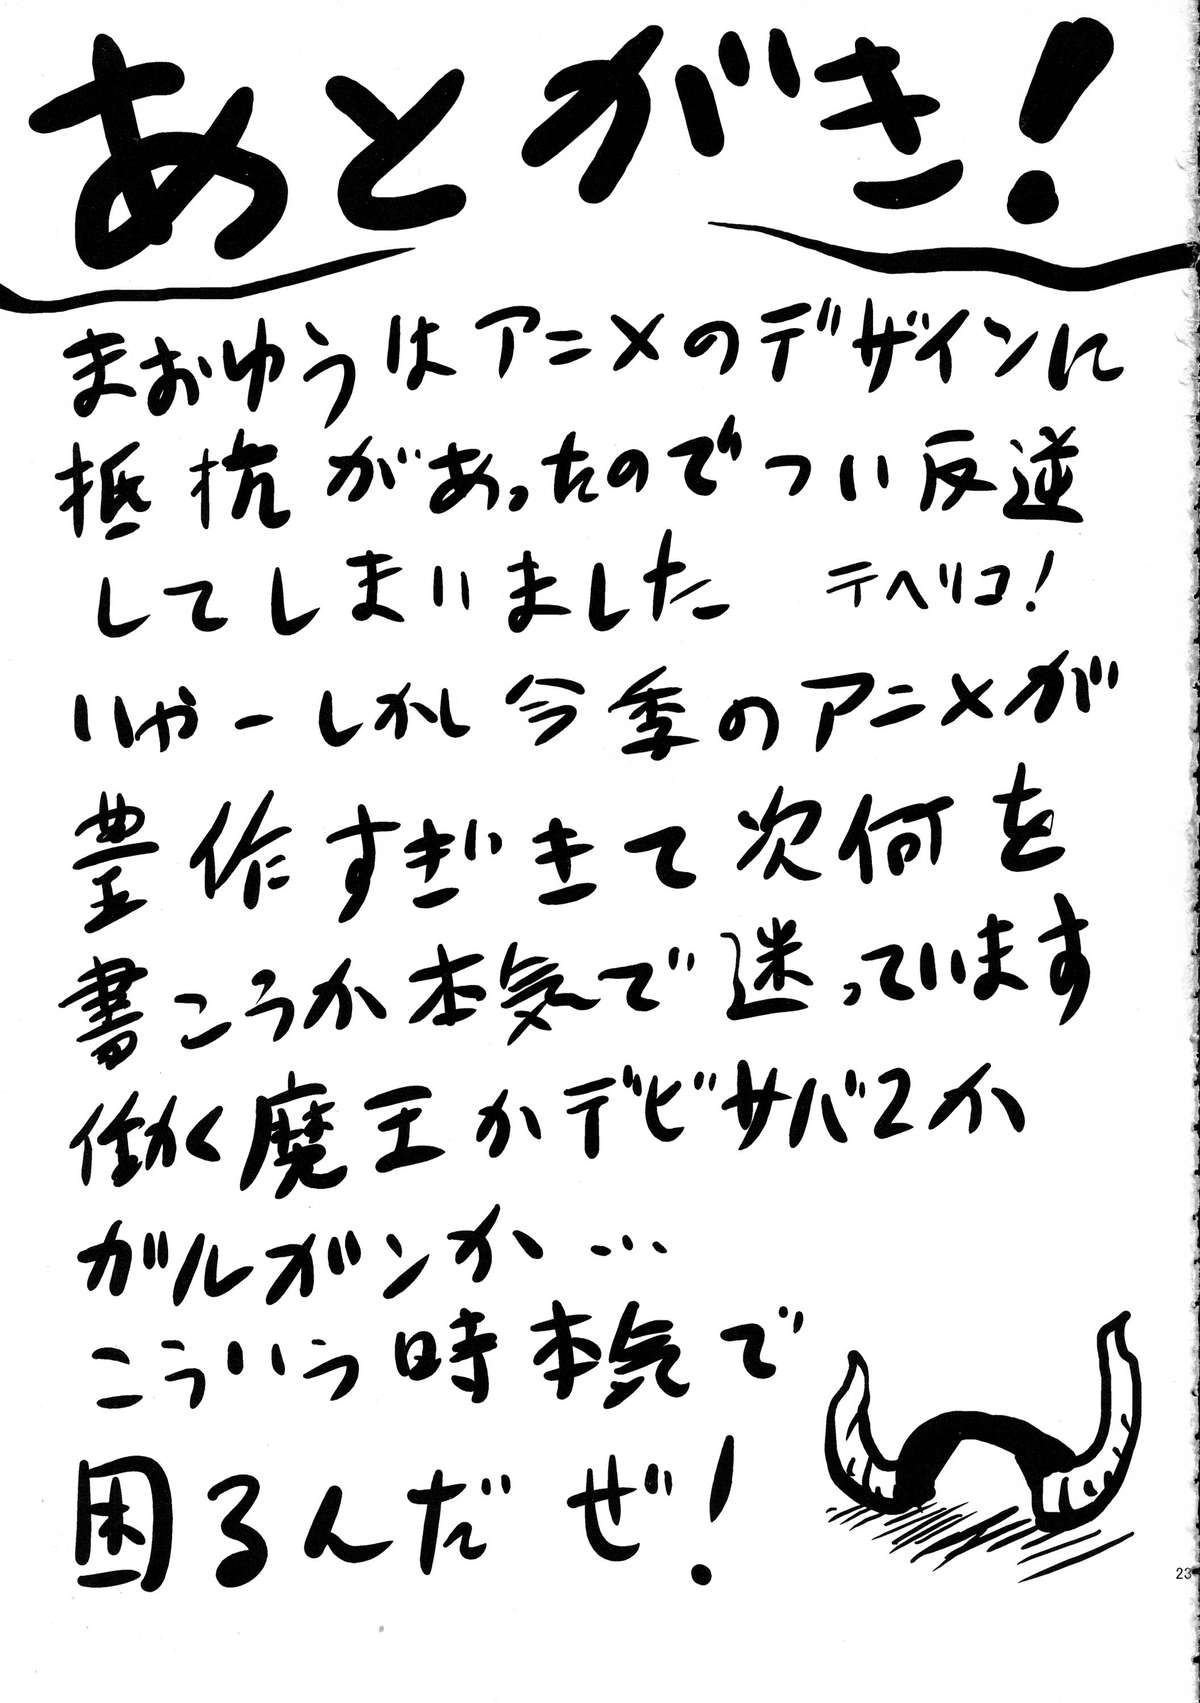 あとがき！
まおゆうはアニメのデザインに
抵抗があったのでつい反逆
してしまいました テヘリコ！
いやーしかし今季のアニメが
豊作すぎきて次何を
書こうか本気で迷っています
働く魔王かデビサバ2か
ガルガンか…
こういう時本気で
困るんだぜ！
23